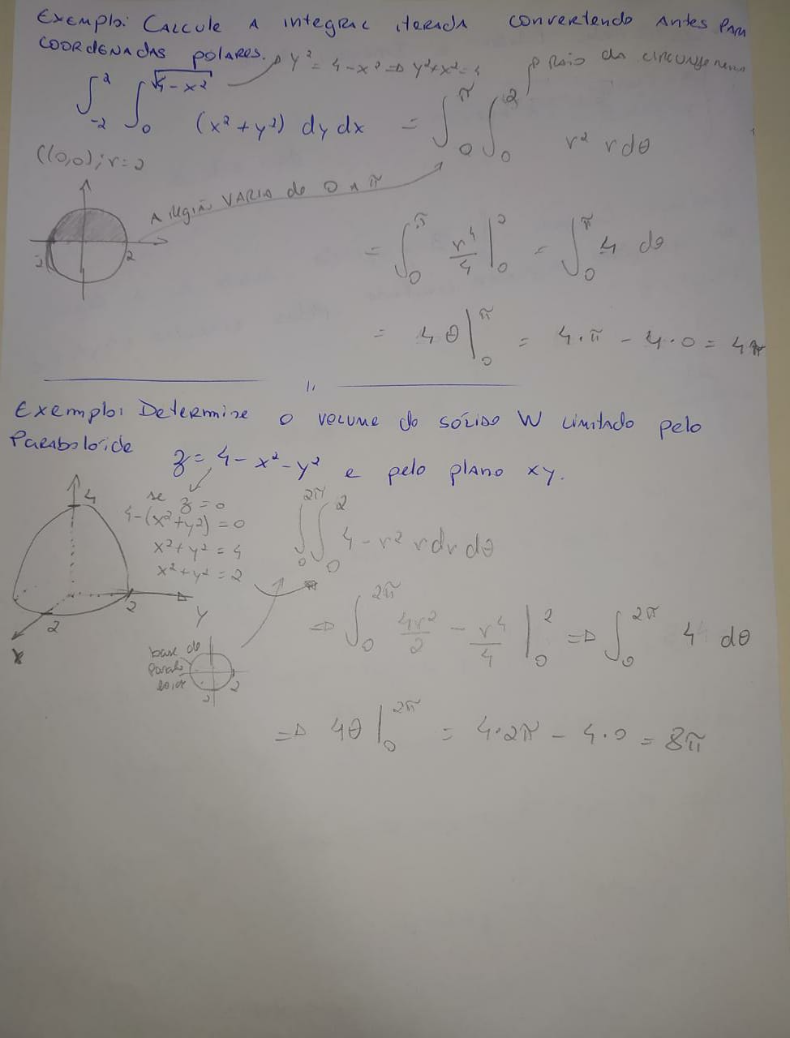 Exemplo: Calcule a integral iterada convertendo antes para
coordenadas polares.
→ y² = 4 - x² ⇒ y² + x² = 4
→ raio da circunferência
∫_{-2}^{2} ∫_{0}^{√4-x²} (x² + y²) dy dx = ∫_{0}^{π} ∫_{0}^{2} r² r dθ
C(0,0); r = 2
A região varia de 0 a π
2
= ∫_{0}^{π} r⁴/4 |_{0}^{2} = ∫_{0}^{π} 4 dθ
= 4θ |_{0}^{π} = 4·π - 4·0 = 4π
Exemplo: Determine o volume do sólido W limitado pelo
Paraboloide z = 4 - x² - y² e pelo plano xy.
4
se z = 0
4-(x²+y²) = 0
x²+y² = 4
x²+y² = 2
2
2
Y
X
∫_{0}^{2π} ∫_{0}^{2} 4 - r² r dr dθ
base do
parabo
loide
2
⇒ ∫_{0}^{2π} 4r²/2 - r⁴/4 |_{0}^{2} ⇒ ∫_{0}^{2π} 4 dθ
⇒ 4θ |_{0}^{2π} = 4·2π - 4·0 = 8π